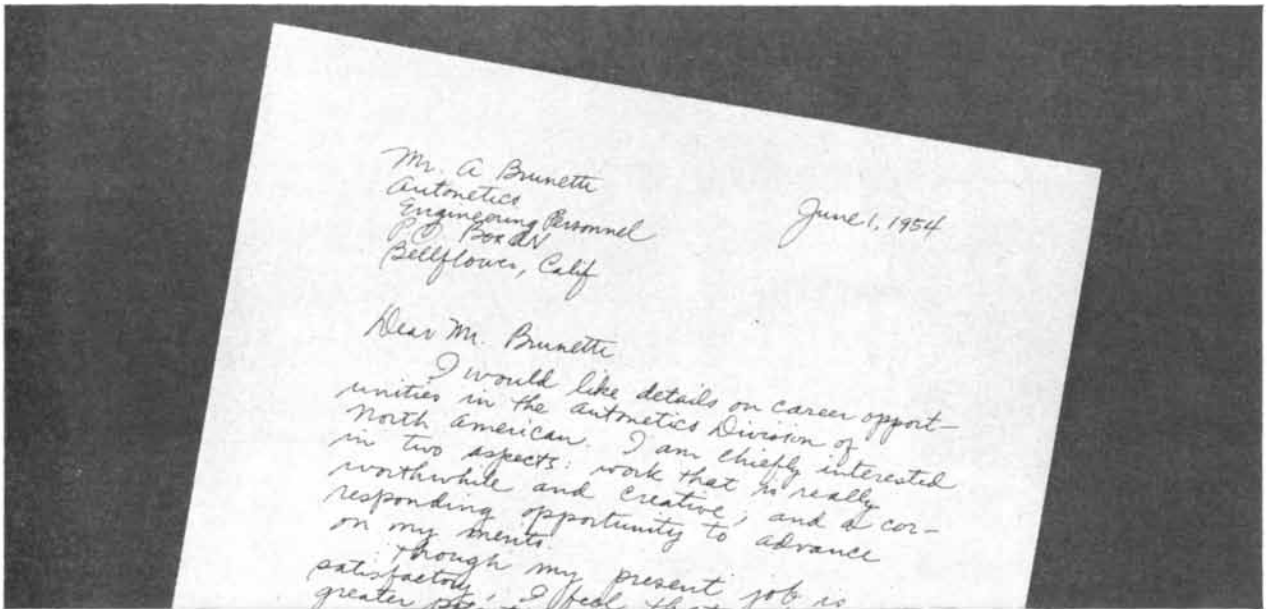 Mr. A Brunette
Autonetics
Engineering Personnel
P.O. Box AN
Bellflower, Calif
June 1, 1954
Dear Mr. Brunette
I would like details on career opport-
unities in the Autonetics Division of
North American. I am chiefly interested
in two aspects: work that is really
worthwhile and creative; and a cor-
responding opportunity to advance
on my merits.
Though my present job is
satisfactory, I feel that
greater